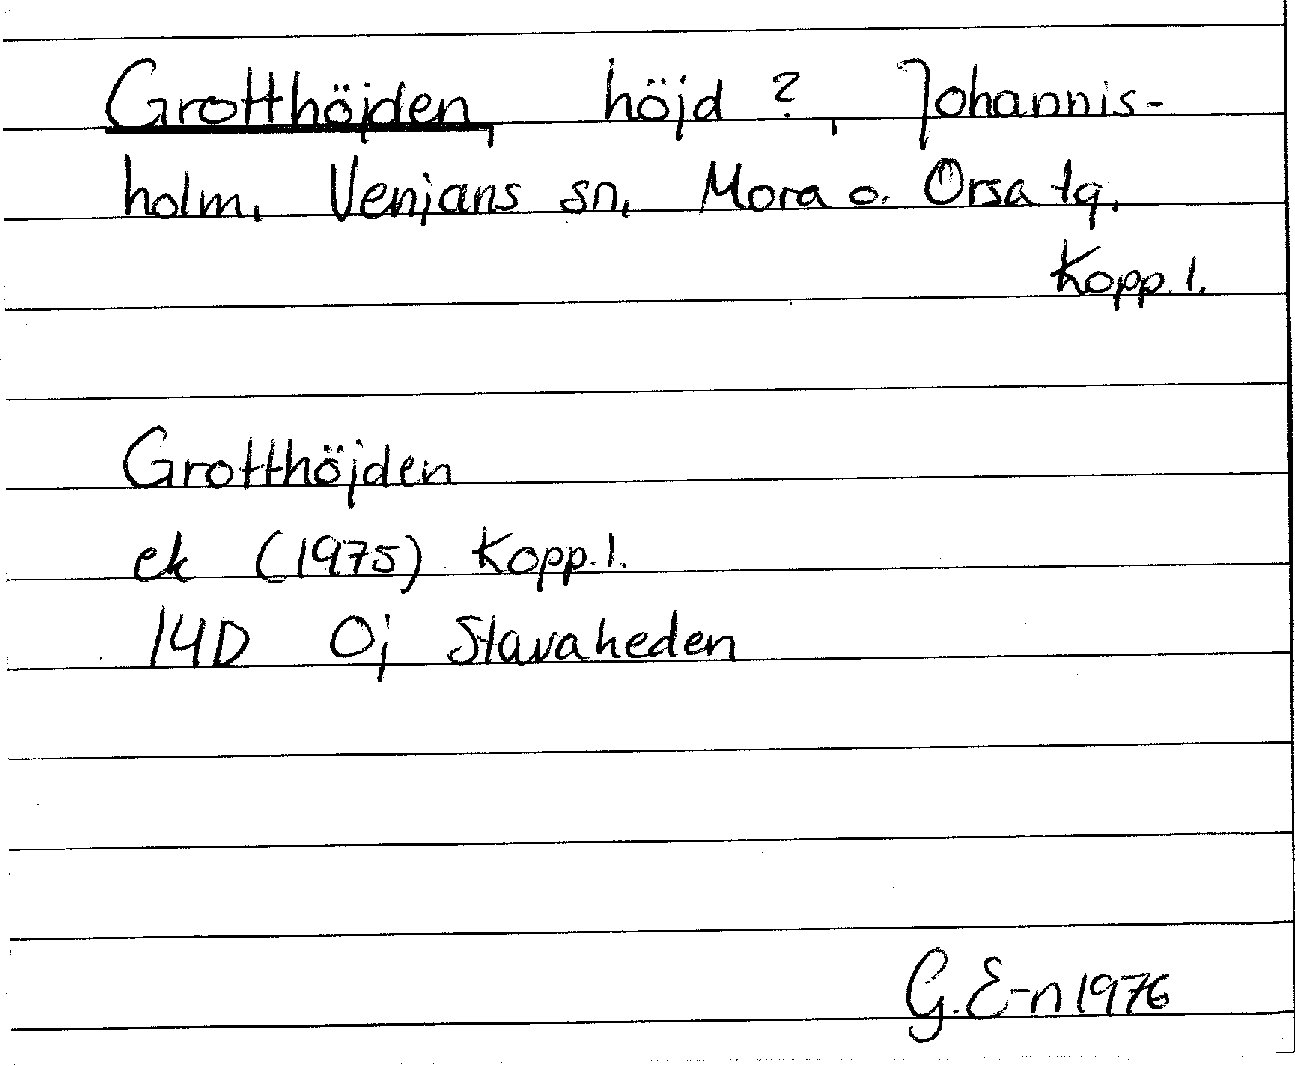 Grotthöjden, höjd ?, Johannis-
holm, Venjans sn, Mora o. Orsa tg.
Kopp. l.
Grotthöjden
ek (1975) Kopp. l.
14D 0j Slavaheden
G. E-n 1976